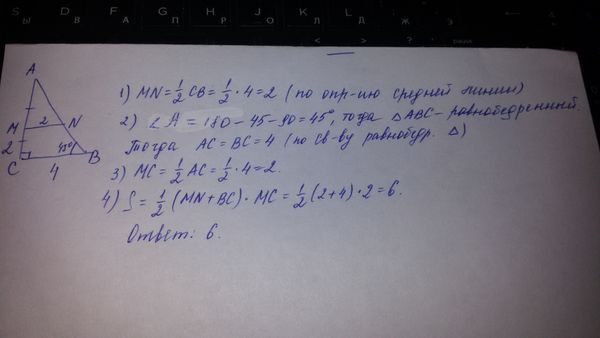 A
M 2 N
2
C 45° B
4
1) MN = 1/2 CB = 1/2 · 4 = 2 (по опр-ию средней линии)
2) ∠A = 180 - 45 - 90 = 45°, тогда △ABC - равнобедренный.
Тогда AC = BC = 4 (по св-ву равнобедр. △)
3) MC = 1/2 AC = 1/2 · 4 = 2.
4) S = 1/2 (MN + BC) · MC = 1/2 (2 + 4) · 2 = 6.
Ответ: 6.